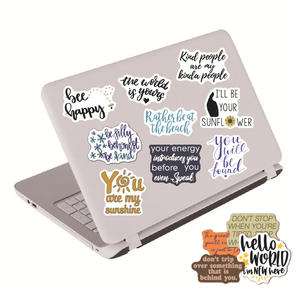 bee
happy
the world
is yours
Kind people
are my
kinda people
Rather be at
the beach
I'LL BE
YOUR
SUNFLOWER
be silly
be honest
be kind
your energy
introduces you
before you
even Speak
You
will be
found
You
are my
sunshine
DON'T STOP
WHEN YOU'RE
TIRED
hello
WORLD
i'm NEW here
don't trip
over something
that is
behind you.